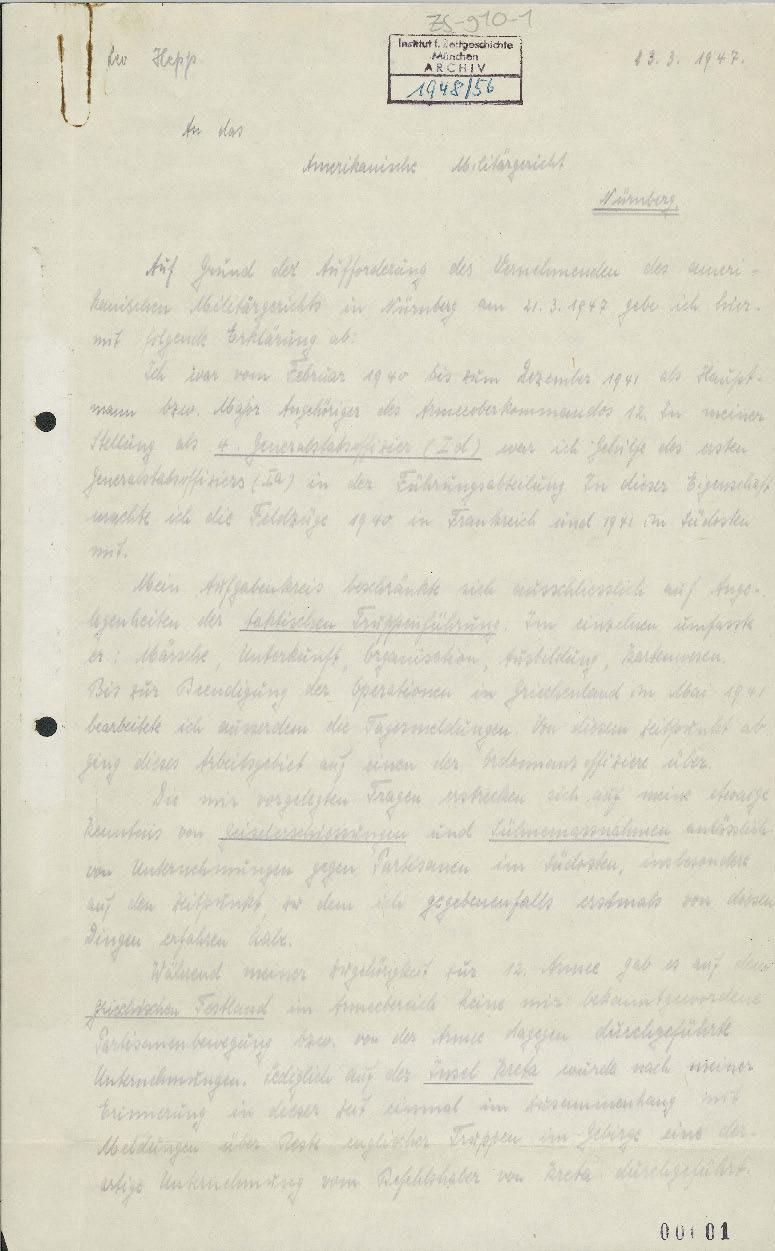 ZS-910-1
Leo Hepp
Institut f. Zeitgeschichte
München
ARCHIV
1948/56
23. 3. 1947.
An das
Amerikanische Militärgericht
Nürnberg.
Auf Grund der Aufforderung des Vernehmenden des ameri-
kanischen Militärgerichts in Nürnberg am 21.3.1947 gebe ich hier-
mit folgende Erklärung ab:
Ich war vom Februar 1940 bis zum Dezember 1941 als Haupt-
mann bzw. Major Angehöriger des Armeeoberkommandos 12. In meiner
Stellung als 4. Generalstabsoffizier (Id) war ich Gehilfe des ersten
Generalstabsoffiziers (Ia) in der Führungsabteilung. In dieser Eigenschaft
machte ich die Feldzüge 1940 in Frankreich und 1941 im Südosten
mit.
Mein Aufgabenkreis beschränkte sich ausschliesslich auf Ange-
legenheiten der taktischen Truppenführung. Im einzelnen umfasste
er: Märsche, Unterkunft, Organisation, Ausbildung, Kartenwesen.
Bis zur Beendigung der Operationen in Griechenland im Mai 1941
bearbeitete ich ausserdem die Tagesmeldungen. Von diesem Zeitpunkt ab
ging dieses Arbeitsgebiet auf einen der Ordonnanzoffiziere über.
Die mir vorgelegten Fragen erstrecken sich auf meine etwaige
Kenntnis von Geiselerschiessungen und Sühnemassnahmen anlässlich
von Unternehmungen gegen Partisanen im Südosten, insbesondere
auf den Zeitpunkt, zu dem ich gegebenenfalls erstmals von diesen
Dingen erfahren habe.
Während meiner Zugehörigkeit zur 12. Armee gab es auf dem
griechischen Festland im Armeebereich keine mir bekanntgewordene
Partisanenbewegung bzw. von der Armee dagegen durchgeführte
Unternehmungen. Lediglich auf der Insel Kreta wurde nach meiner
Erinnerung in dieser Zeit einmal im Zusammenhang mit
Meldungen über Reste englischer Truppen im Gebirge eine der-
artige Unternehmung vom Befehlshaber von Kreta durchgeführt.
00001